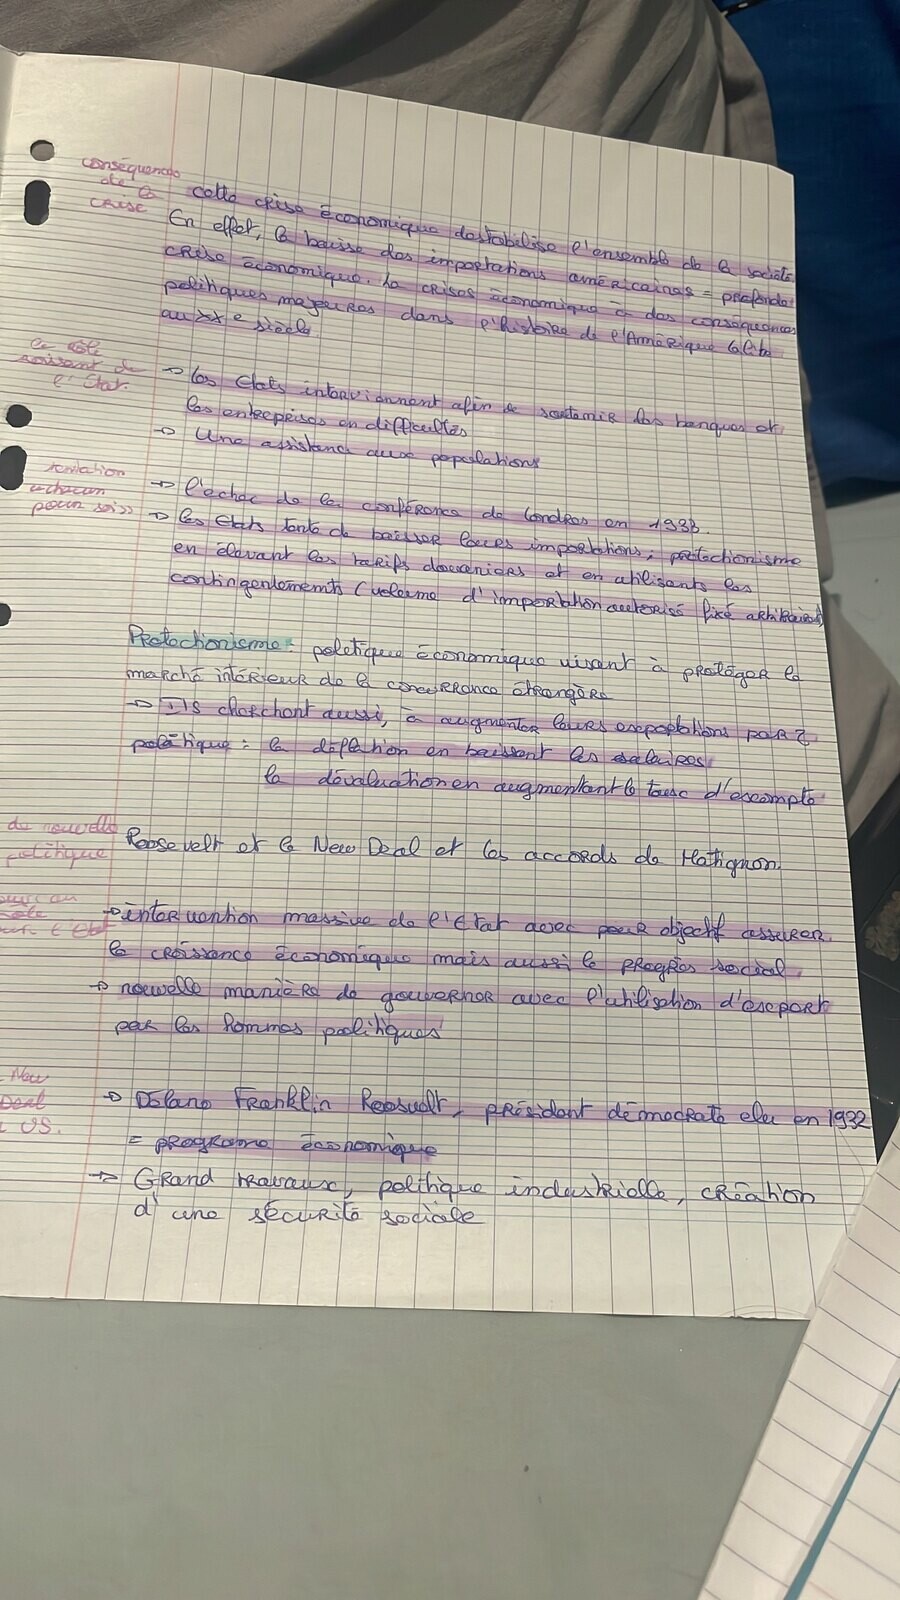 conséquende
de la
crise
cette crise économique destabilise l'ensemble de la société
En effet, la baisse des importations américaines = profonde
crise économique. La crises économique à des conséquences
politiques majeures dans l'histoire de l'Amérique latine
au XXe siècle
le rôle
croissant de
l'Etat.
→ les Etats interviennent afin de soutenir les banques et
les entreprises en difficultés
→ Une assistance aux populations
tentation
« chacun
pour soi »
→ l'échec de la conférence de Londres en 1933.
→ les Etats tente de baisser leurs importations, protectionisme
en élevant les tarifs douaniers et en utilisants les
contingentements (volume d'importation autorisé fixé
Protectionisme : politique économique visant à protéger le
marché intérieur de la concurrence étrangère
→ Ils cherchent aussi, à augmenter leurs exportations par 2
politique : la déflation en baissant les salaires
la dévaluation en augmentant le taux d'escompte
de nouvelle
politique
Roosevelt et le New Deal et les accords de Matignon.
→ intervention massive de l'Etat avec pour objectif assurer
la croissance économique mais aussi le progrès social
→ nouvelle manière de gouverner avec l'utilisation d'expert
par les hommes politiques
New
Deal
US.
→ Délano Franklin Roosvelt, président démocrate elu en 1932
= programe économique
→ Grand travaux, politique industrielle, création
d'une sécurité sociale